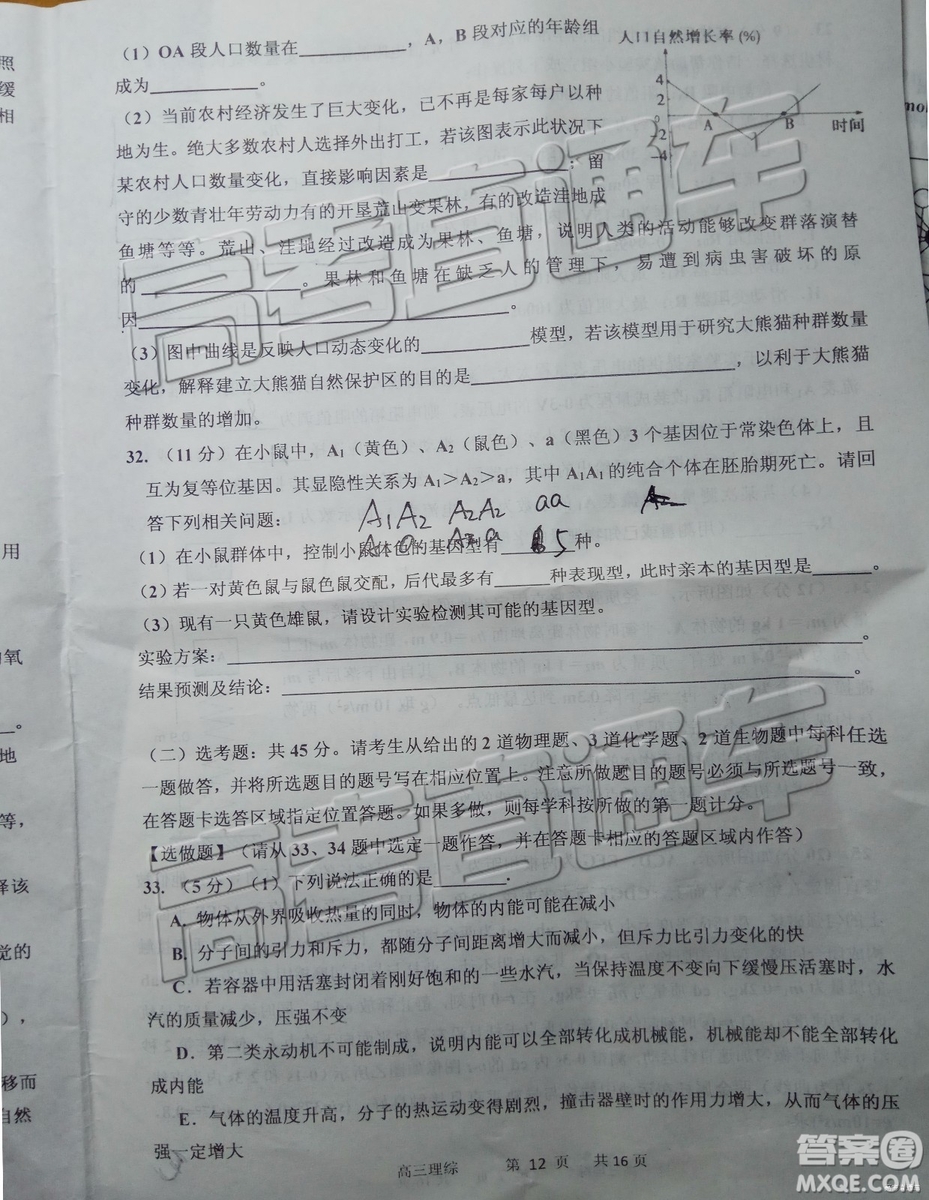 (1) OA 段人口数量在__________,A,B 段对应的年龄组
成为__________。
(2) 当前农村经济发生了巨大变化,已不再是每家每户以种
地为生。绝大多数农村人选择外出打工,若该图表示此状况下
某农村人口数量变化,直接影响因素是__________;留
守的少数青壮年劳动力有的开垦荒山变果林,有的改造洼地成
鱼塘等等。荒山、洼地经过改造成为果林、鱼塘,说明人类的活动能够改变群落演替
的__________。果林和鱼塘在缺乏人的管理下,易遭到病虫害破坏的原
因__________。
(3)图中曲线是反映人口动态变化的__________模型,若该模型用于研究大熊猫种群数量
变化,解释建立大熊猫自然保护区的目的是__________,以利于大熊猫
种群数量的增加。
人口自然增长率(%)
4
2
0
-2
-4
A
B
时间
32.(11 分)在小鼠中,A₁(黄色)、A₂(鼠色)、a(黑色)3 个基因位于常染色体上,且
互为复等位基因。其显隐性关系为 A₁>A₂>a,其中 A₁A₁ 的纯合个体在胚胎期死亡。请回
答下列相关问题:
A₁A₂ A₂A₂ aa A₂
A₁a A₂a
(1)在小鼠群体中,控制小鼠体色的基因型有__5__种。
(2)若一对黄色鼠与鼠色鼠交配,后代最多有______种表现型,此时亲本的基因型是______。
(3)现有一只黄色雄鼠,请设计实验检测其可能的基因型。
实验方案:__________。
结果预测及结论:__________
(二)选考题:共 45 分。请考生从给出的 2 道物理题、3 道化学题、2 道生物题中每科任选
一题做答,并将所选题目的题号写在相应位置上。注意所做题目的题号必须与所选题号一致,
在答题卡选答区域指定位置答题。如果多做,则每学科按所做的第一题计分。
【选做题】(请从 33、34 题中选定一题作答,并在答题卡相应的答题区域内作答)
33.(5 分)(1)下列说法正确的是________.
A.物体从外界吸收热量的同时,物体的内能可能在减小
B.分子间的引力和斥力,都随分子间距离增大而减小,但斥力比引力变化的快
C.若容器中用活塞封闭着刚好饱和的一些水汽,当保持温度不变向下缓慢压活塞时,水
汽的质量减少,压强不变
D.第二类永动机不可能制成,说明内能可以全部转化成机械能,机械能却不能全部转化
成内能
E.气体的温度升高,分子的热运动变得剧烈,撞击器壁时的作用力增大,从而气体的压
强一定增大
高三理综 第 12 页 共 16 页
照
缓
相
用
的氧
。
地
等,
择该
觉的
),
移而
自然
高考直通车
高考直通车
答案圈